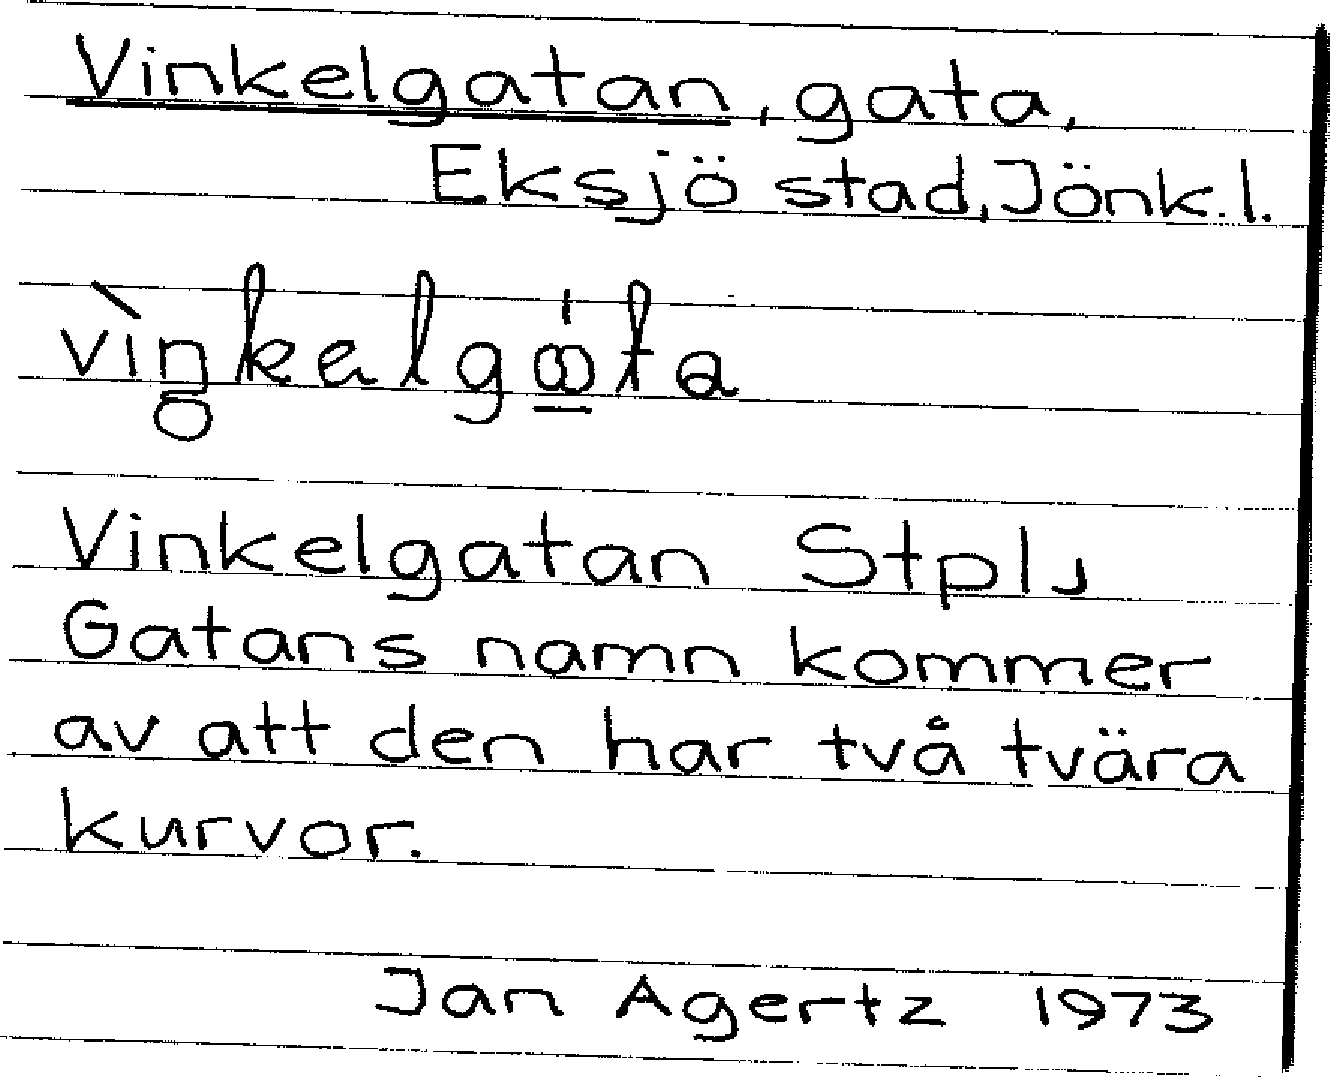 Vinkelgatan, gata,
Eksjö stad, Jönk. l.
Vinkelgatan Stpl,
Gatans namn kommer
av att den har två tvära
kurvor.
Jan Agertz 1973